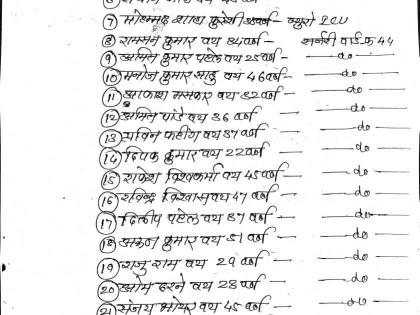 ⑦ मोहम्मद शादा कुरेशी वर्ष - न्युरो ICU
⑧ रामसन कुमार वय 34 वर्ष - सर्जरी वार्ड क्र 44
⑨ अमित कुमार पटेल वय 25 वर्ष - do
⑩ मनोज कुमार साहु वय 46 वर्ष - do
⑪ आकाश मसकर वय 32 वर्ष - do
⑫ अमित पांडे वय 36 वर्ष - do
⑬ प्रविन वय 37 वर्ष - do
⑭ दिपक कुमार वय 22 वर्ष - do
⑮ राकेश विश्वकर्मा वय 45 वर्ष - do
⑯ रविन्द्र विश्वास वय 47 वर्ष - do
⑰ दिलीप पटेल वय 37 वर्ष - do
⑱ कुमार वय 31 वर्ष - do
⑲ राजु राम वय 29 वर्ष - do
⑳ ओम वय 28 वर्ष - do
㉑ संजय वय 45 वर्ष - do